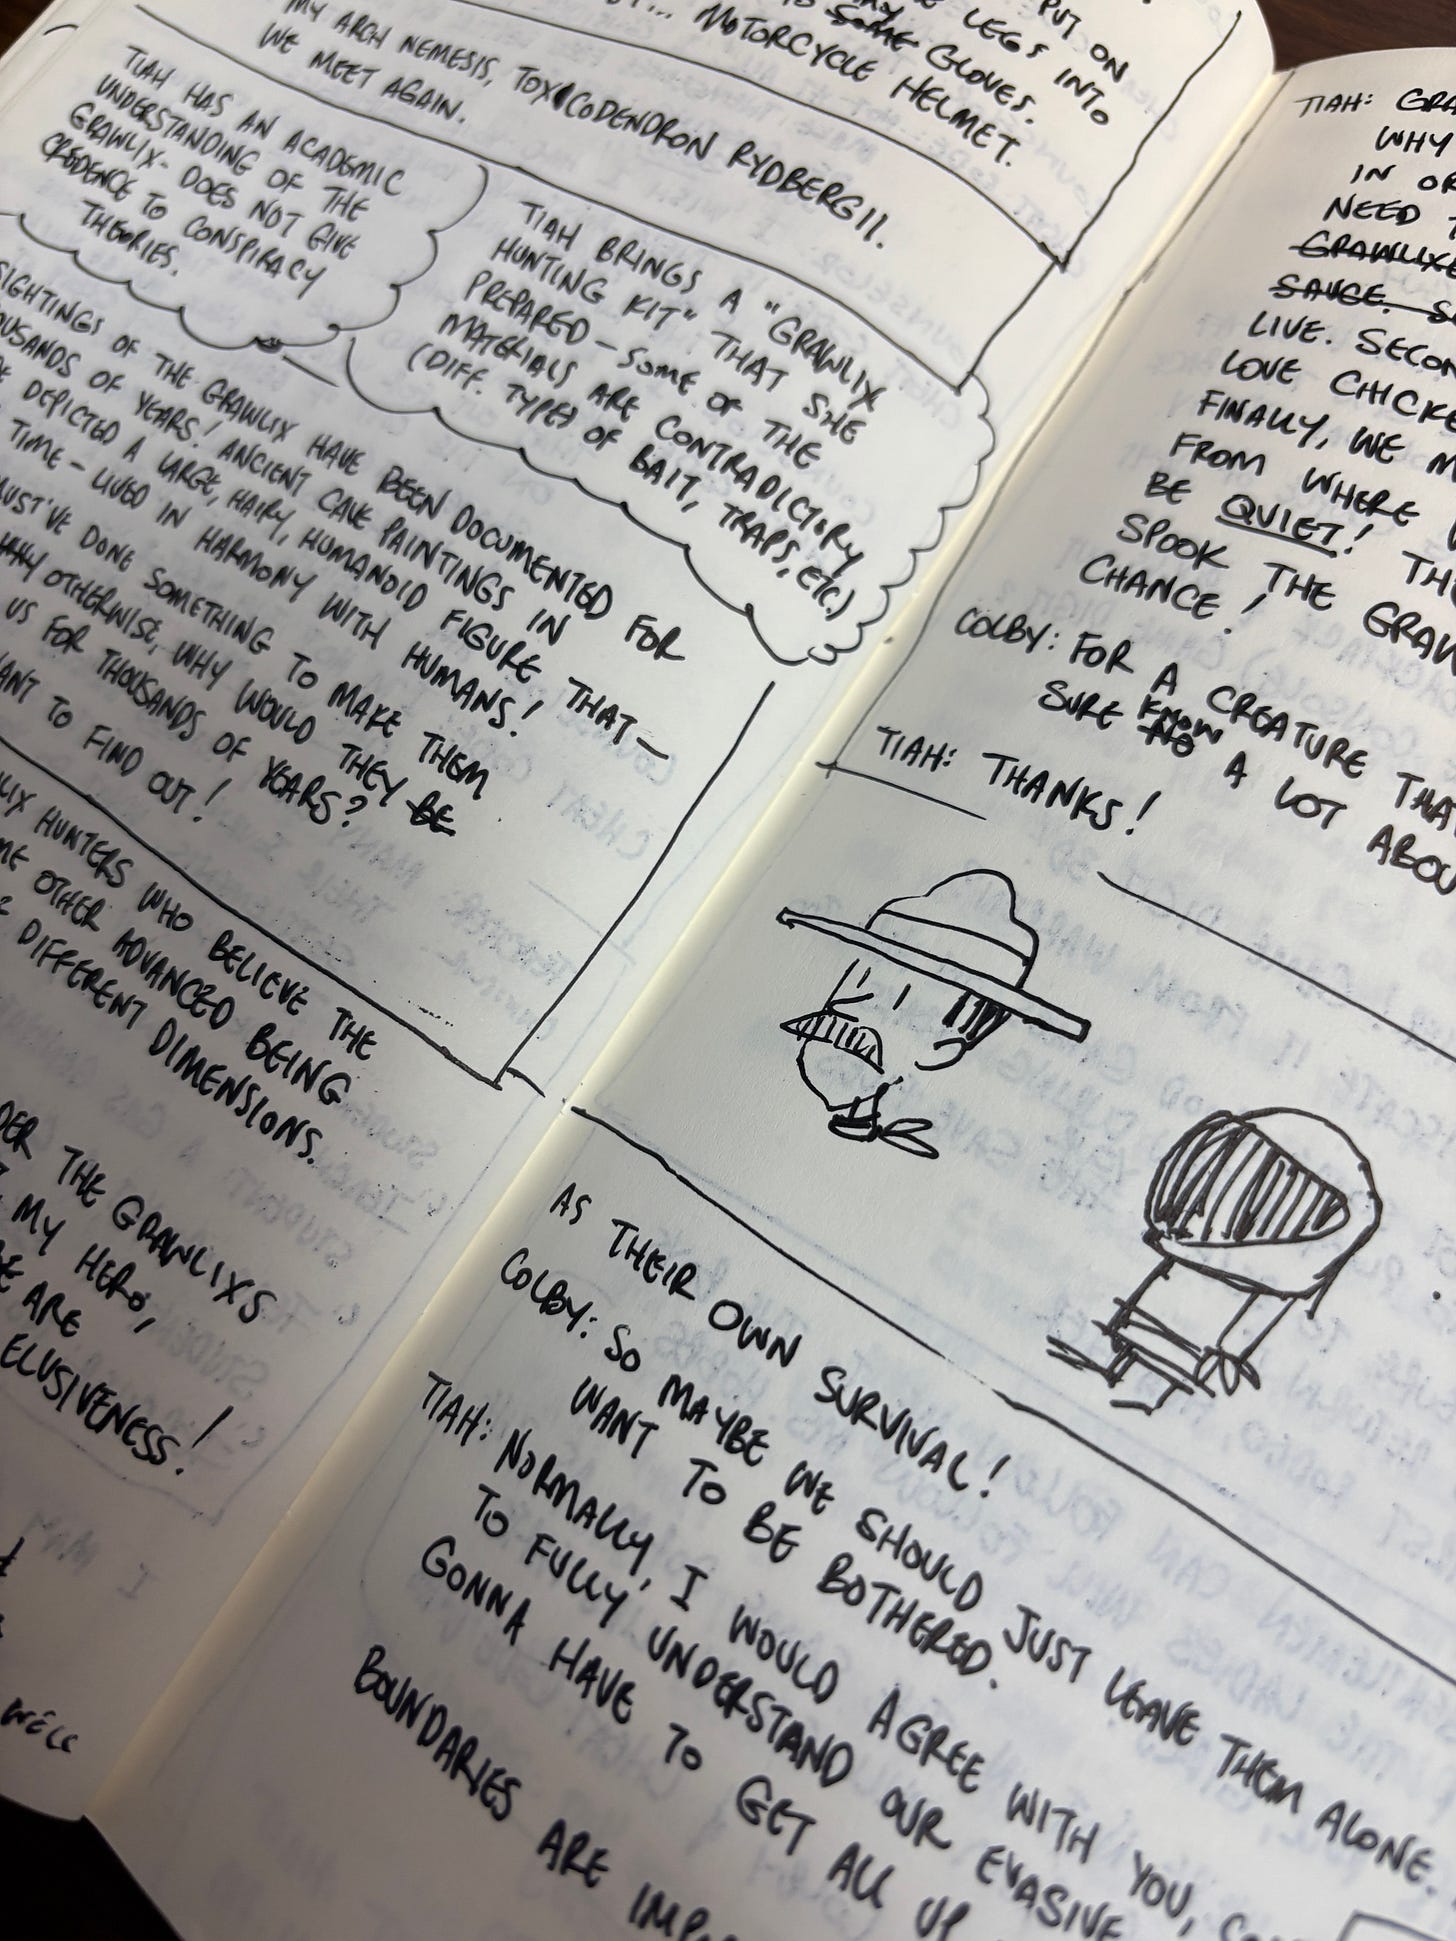 PUT ON
LEGS INTO
SOME GLOVES.
MOTORCYCLE HELMET.
MY ARCH NEMESIS, TOXICODENDRON RYDBERGII.
WE MEET AGAIN.
TIAH HAS AN ACADEMIC
UNDERSTANDING OF THE
GRAWLIX - DOES NOT GIVE
CREDENCE TO CONSPIRACY
THEORIES.
TIAH BRINGS A "GRAWLIX
HUNTING KIT" THAT SHE
PREPARED - SOME OF THE
MATERIALS ARE CONTRADICTORY
(DIFF. TYPES OF BAIT, TRAPS, ETC.)
SIGHTINGS OF THE GRAWLIX HAVE BEEN DOCUMENTED FOR
OF YEARS! ANCIENT CAVE PAINTINGS IN
DEPICTED A LARGE, HAIRY, HUMANOID FIGURE THAT -
TIME - LIVED IN HARMONY WITH HUMANS!
DONE SOMETHING TO MAKE THEM
WHY OTHERWISE, WHY WOULD THEY BE
US FOR THOUSANDS OF YEARS?
TO FIND OUT!
HUNTERS WHO BELIEVE THE
OTHER ADVANCED BEING
DIFFERENT DIMENSIONS.
THE GRAWLIXS
MY HERO,
ARE
ELUSIVENESS!
WE'LL
TIAH:
WHY
IN
NEED
SAUCE.
LIVE.
LOVE
FINALLY, WE
FROM WHERE
BE QUIET!
SPOOK THE
CHANCE!
COLBY: FOR A CREATURE
SURE KNOW NO A LOT
TIAH: THANKS!
AS THEIR OWN SURVIVAL!
COLBY: SO MAYBE WE SHOULD JUST LEAVE THEM ALONE.
WANT TO BE BOTHERED.
TIAH: NORMALLY, I WOULD AGREE WITH YOU,
TO FULLY UNDERSTAND OUR EVASIVE
GONNA HAVE TO GET ALL UP
BOUNDARIES ARE